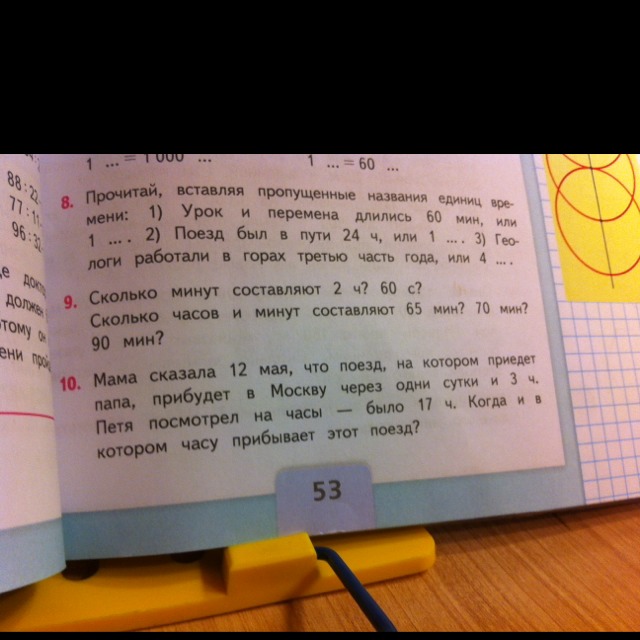 1 ... = 1 000 ...
1 ... = 60 ...
88 : 22
8. Прочитай, вставляя пропущенные названия единиц вре-
мени: 1) Урок и перемена длились 60 мин, или
1 ... . 2) Поезд был в пути 24 ч, или 1 ... . 3) Гео-
логи работали в горах третью часть года, или 4 ... .
9. Сколько минут составляют 2 ч? 60 с?
Сколько часов и минут составляют 65 мин? 70 мин?
90 мин?
10. Мама сказала 12 мая, что поезд, на котором приедет
папа, прибудет в Москву через одни сутки и 3 ч.
Петя посмотрел на часы — было 17 ч. Когда и в
котором часу прибывает этот поезд?
53